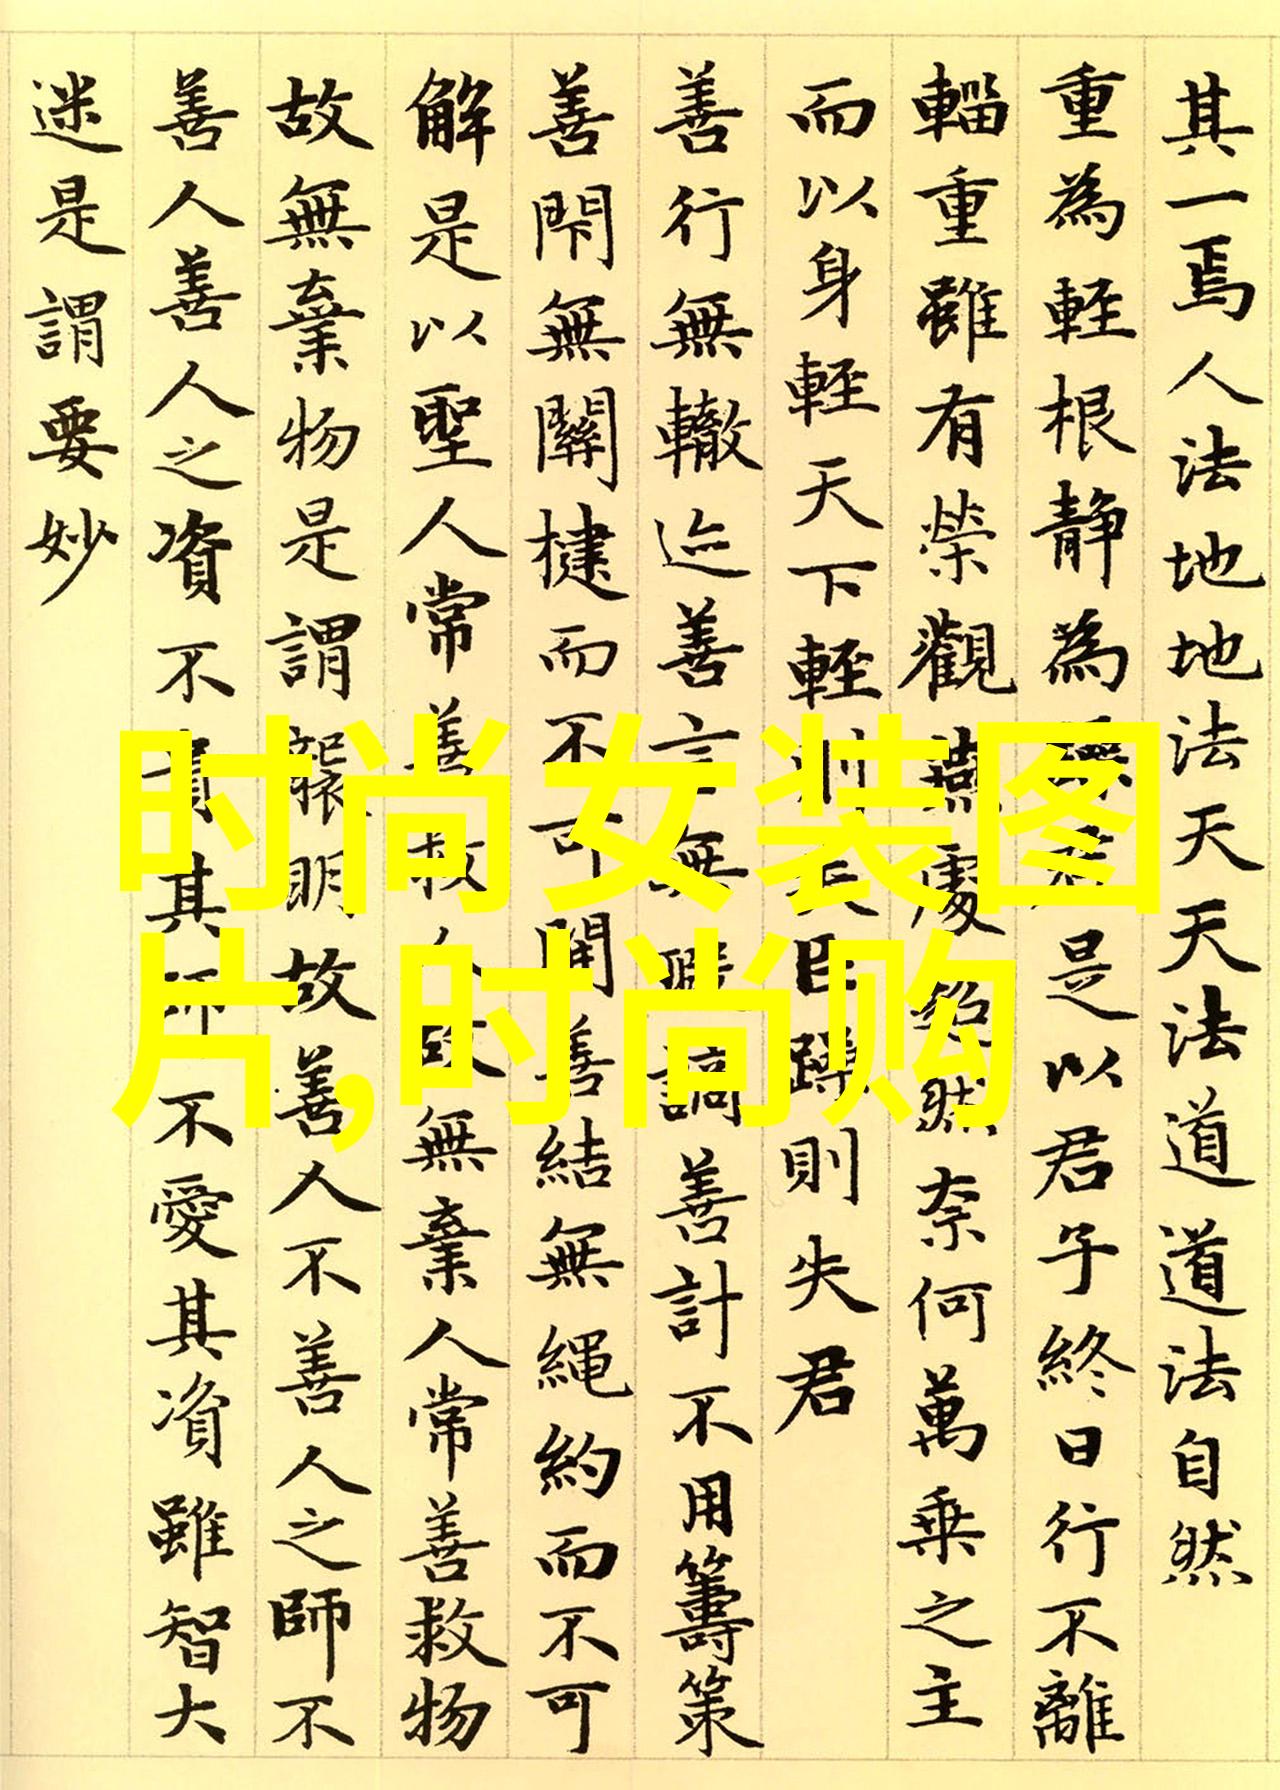 其一焉人法地地法天天法道道法自然
重為輕根静為躁君是以君子終日行不離
輜重雖有榮觀燕處超然奈何萬乗之主
而以身輕天下輕則失臣躁則失君
善行無轍迹善言無瑕謫善計不用籌策
善閇無關楗而不可開善結無縄約而不可
解是以聖人常善救人故無棄人常善救物
故無棄物是謂襲明故善人不善人之師不
善人善人之資不貴其師不愛其資雖智大
迷是謂要妙
时尚女装图
片,时尚购